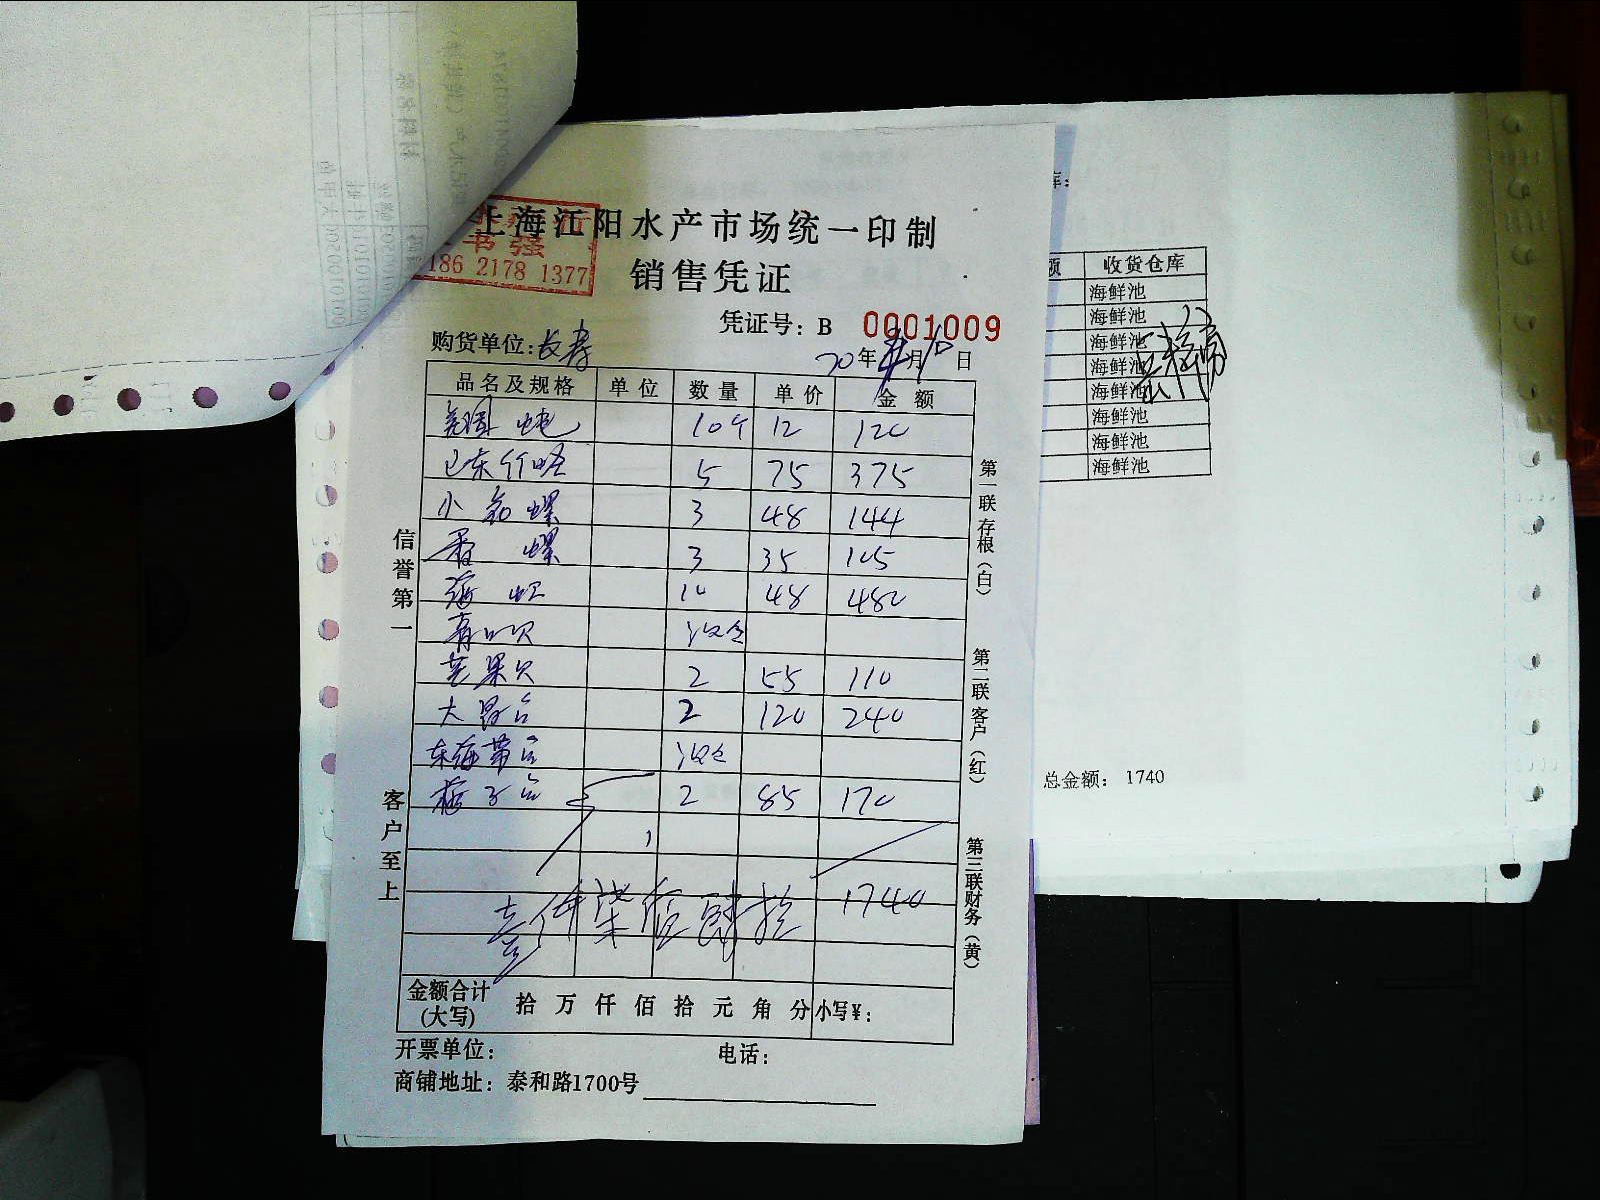 上海江阳水产市场统一印制
书强
186 2178 1377
销售凭证
凭证号：B 0001009
购货单位：长寿
20年 月10日
品名及规格 单位 数量 单价 金额
美国 10个 12 120
5 75 375
小 螺 3 48 144
香螺 3 35 105
海 10 48 480
青口贝
芒果贝 2 55 110
大 2 120 240
东海带
2 85 170
1740
金额合计(大写) 拾 万 仟 佰 拾 元 角 分 小写¥：
开票单位： 电话：
商铺地址：泰和路1700号
信誉第一
客户至上
第一联存根（白）
第二联客户（红）
第三联财务（黄）
库：
额 收货仓库
海鲜池
海鲜池
海鲜池
海鲜池
海鲜池
海鲜池
海鲜池
海鲜池
总金额： 1740